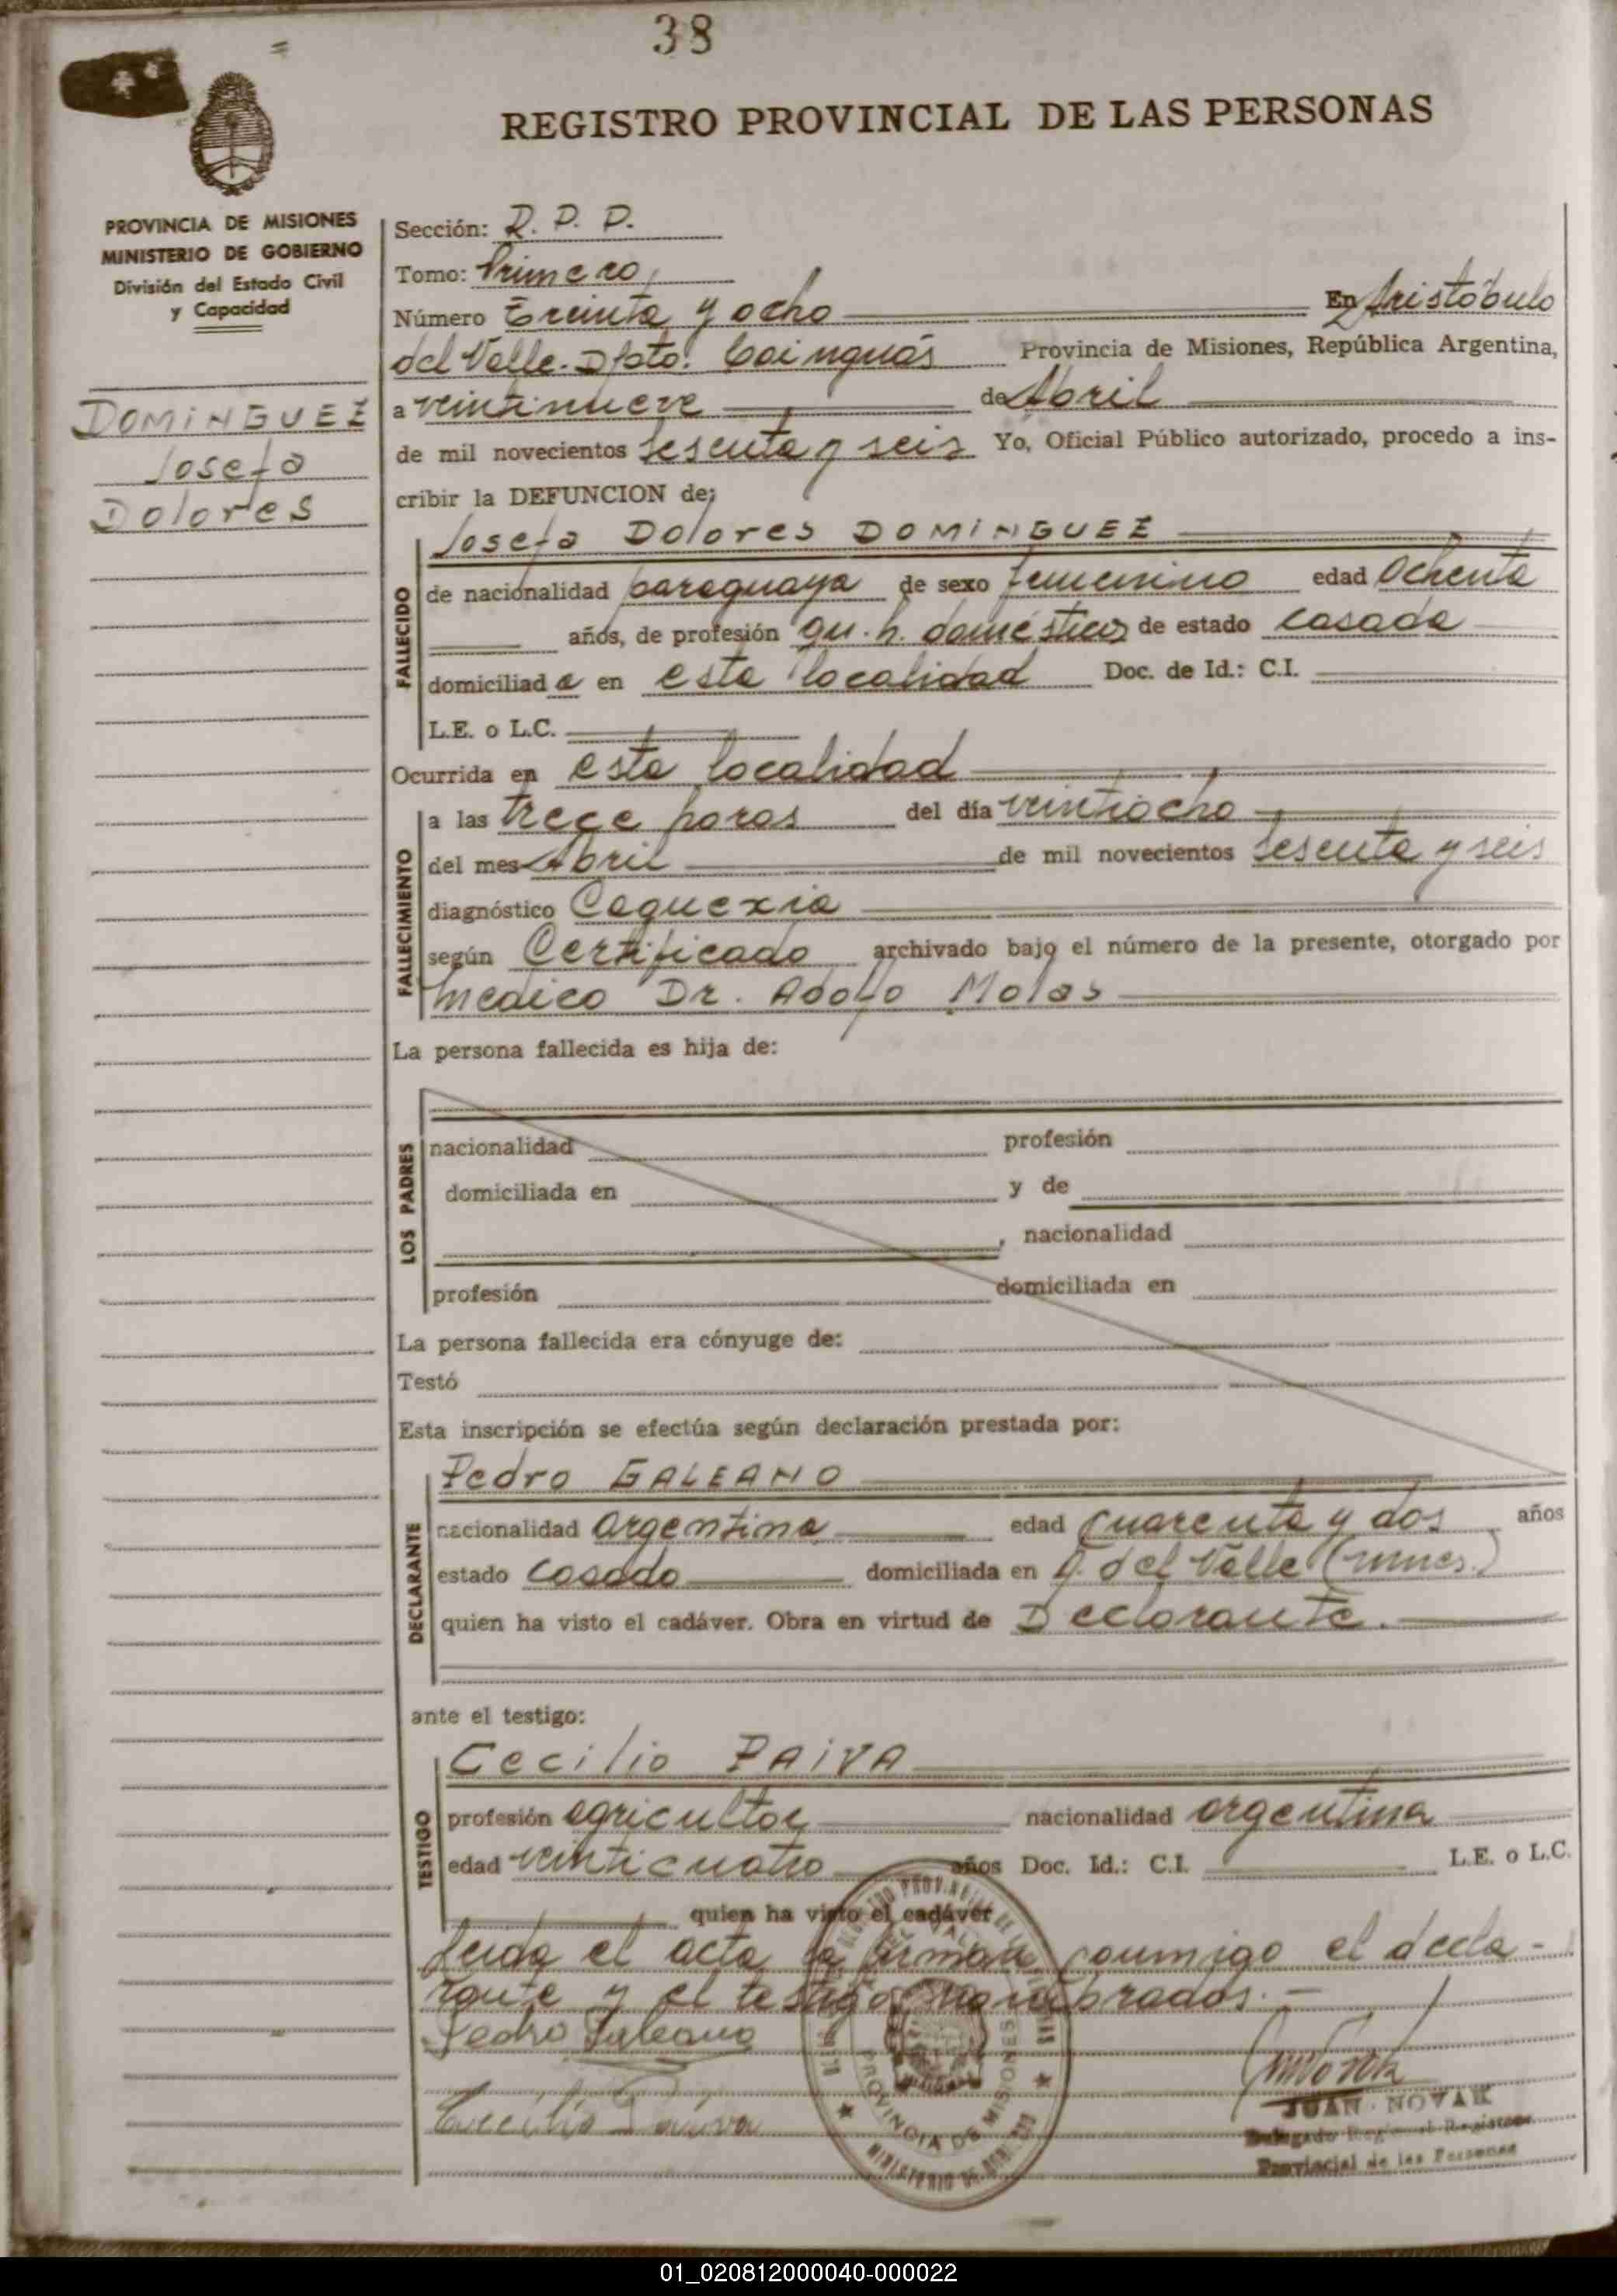 38
REGISTRO PROVINCIAL DE LAS PERSONAS
PROVINCIA DE MISIONES
MINISTERIO DE GOBIERNO
División del Estado Civil
y Capacidad
DOMINGUEZ
Josefa
Dolores
Sección: R. P. P.
Tomo: Primero,
Número Treinta y ocho En Aristóbulo
del Valle. Dpto. Cainguás Provincia de Misiones, República Argentina,
a veintinueve de Abril
de mil novecientos sesenta y seis Yo, Oficial Público autorizado, procedo a ins-
cribir la DEFUNCION de;
Josefa Dolores DOMINGUEZ
FALLECIDO
de nacionalidad paraguaya de sexo femenino edad ochenta
años, de profesión qu. h. domésticos de estado casada
domiciliada en esta localidad Doc. de Id.: C.I.
L.E. o L.C.
Ocurrida en esta localidad
FALLECIMIENTO
a las trece horas del día veintiocho
del mes Abril de mil novecientos sesenta y seis
diagnóstico Caquexia
según Certificado archivado bajo el número de la presente, otorgado por
medico Dr. Adolfo Molas
La persona fallecida es hija de:
LOS PADRES
nacionalidad profesión
domiciliada en y de
, nacionalidad
profesión domiciliada en
La persona fallecida era cónyuge de:
Testó
Esta inscripción se efectúa según declaración prestada por:
Pedro GALEANO
DECLARANTE
nacionalidad argentina edad cuarenta y dos años
estado casado domiciliada en A. del Valle (mnes.)
quien ha visto el cadáver. Obra en virtud de Declarante.
ante el testigo:
Cecilio PAIVA
TESTIGO
profesión agricultor nacionalidad argentina
edad veinticuatro años Doc. Id.: C.I. L.E. o L.C.
quien ha visto el cadáver
Leida el acta la firman conmigo el decla-
rante y el testigo nombrados.-
Pedro Galeano
Cecilio Paiva
PROVINCIA DE MISIONES
JUAN NOVAK
Delegado Regional Registro
Provincial de las Personas
01_020812000040-000022